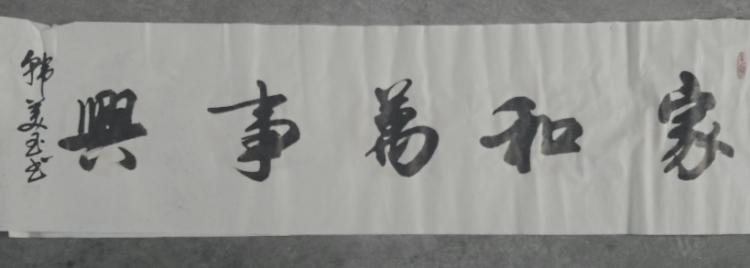 家和萬事興
韩美玉书